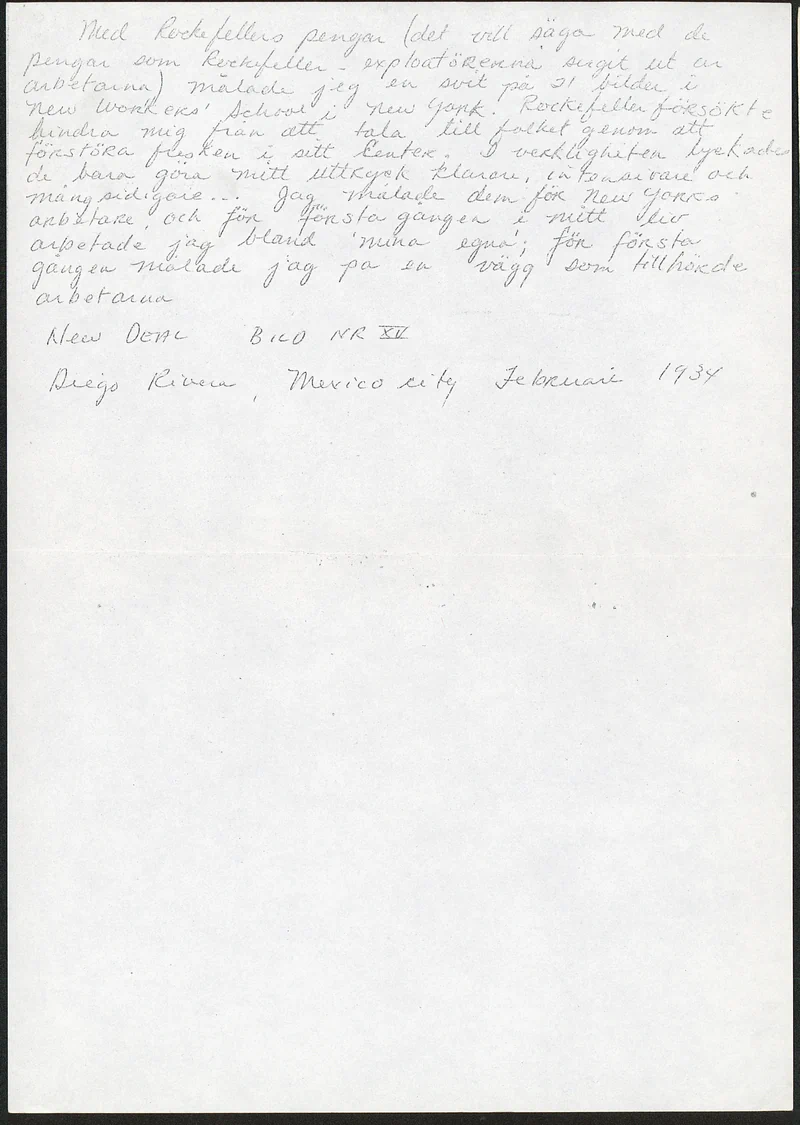 Med Rockefellers pengar (det vill säga med de
pengar som Rockefeller - exploatörerna sugit ut ur
arbetarna) målade jag en svit på 21 bilder i
New Workers' School i New York. Rockefeller försökte
hindra mig från att tala till folket genom att
förstöra fresken i sitt Center. I verkligheten lyckades
de bara göra mitt uttryck klarare, intensivare och
mångsidigare... Jag målade dem för New Yorks
arbetare, och för första gången i mitt liv
arbetade jag bland 'mina egna'; för första
gången målade jag på en vägg som tillhörde
arbetarna
New DEAL BILD NR XV
Diego Rivera, Mexico city Februari 1934